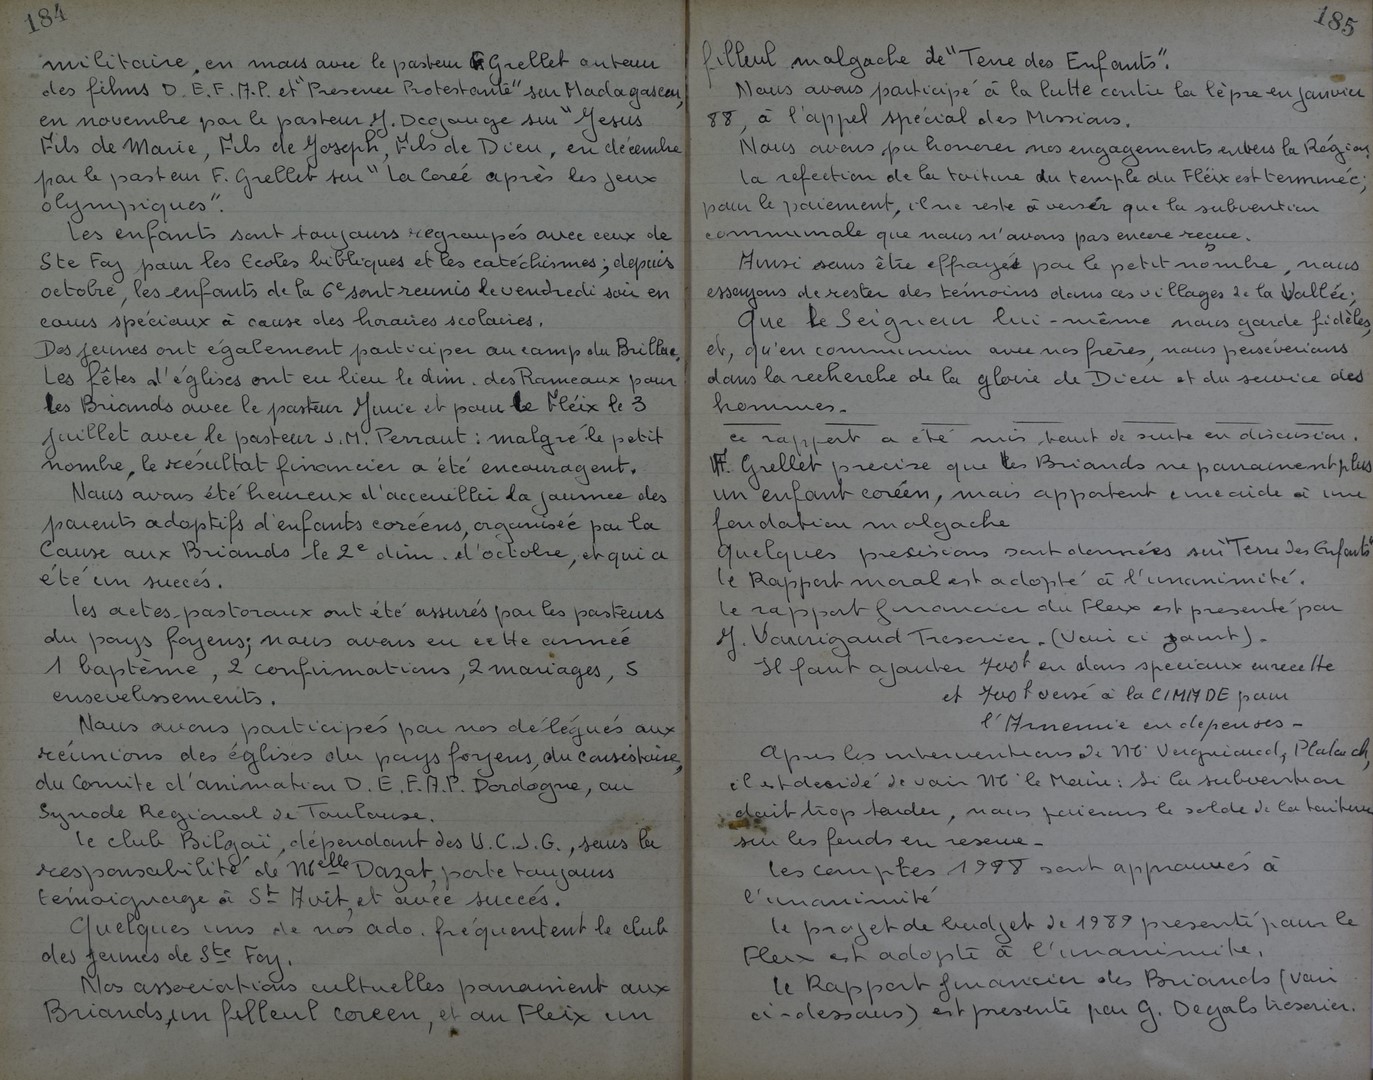 184
militaire, en mars avec le pasteur F Grellet auteur
des films D.E.F.A.P. et "Presence Protestante" sur Madagascar,
en novembre par le pasteur J. Degauge sur "Jesus
Fils de Marie, Fils de Joseph, Fils de Dieu, en décembre
par le pasteur F. Grellet sur "la Coreé après les jeux
olympiques".
Les enfants sont toujours regroupés avec ceux de
Ste Foy pour les Ecoles bibliques et les catéchismes; depuis
octobre, les enfants de la 6e sont reunis le vendredi soir en
cours spéciaux à cause des horaires scolaires.
Des jeunes ont également participer au camp du Brillac,
Les fêtes d'églises ont eu lieu le dim. des Rameaux pour
les Briands avec le pasteur Yunie et pour le Fléix le 3
juillet avec le pasteur J.M. Perraut: malgré le petit
nombre, le résultat financier a été encouragent.
Nous avons été heureux d'acceuillir la journee des
parents adoptifs d'enfants coréens, organiseé par la
Cause aux Briands le 2e dim. d'octobre, et qui a
été un succés.
les actes-pastoraux ont été assurés par les pasteurs
du pays foyens; nous avons eu cette année
1 baptême, 2 confirmations, 2 mariages, 5
ensevelissements.
Nous avons participés par nos délégués aux
réunions des églises du pays foyens, du consistoire,
du Comite d'animation D.E.F.A.P. Dordogne, au
Synode Regional de Toulouse.
le club Bilgaï, dépendant des U.C.J.G., sous la
responsabilité de Melle Dazat, porte toujours
témoignage à St Avit, et avec succés.
Quelques uns de nos ado. fréquentent le club
des jeunes de Ste Foy.
Nos associations cultuelles parrainent aux
Briands, un filleul coreen, et au Fleix un
185
filleul malgache de "Terre des Enfants".
Nous avons participé à la lutte contre la lèpre en janvier
88, à l'appel spécial des Missions.
Nous avons pu honorer nos engagements envers la Région,
la refection de la toiture du temple du Fléix est terminée;
pour le paiement, il ne reste à verser que la subvention
communale que nous n'avons pas encore reçue.
Ainsi sans être effrayés par le petit nombre, nous
essayons de rester des témoins dans ces villages de la Vallée;
Que le Seigneur lui-même nous garde fidèles,
et, qu'en communion avec nos frères, nous perséverions
dans la recherche de la gloire de Dieu et du service des
hommes.
ce rapport a été mis tout de suite en discussion.
F. Grellet precise que les Briands ne parrainent plus
un enfant coréen, mais apportent une aide à une
fondation malgache
Quelques presisions sont données sur "Terre des Enfants"
le Rapport moral est adopté à l'unanimité.
le rapport financier du Fleix est presenté par
J. Vauvigaud Tresorier. (Voir ci joint).
Il faut ajouter 700f en dons speciaux en recette
et 700f versé à la CIMADE pour
l'Armenie en depenses -
Apres les interventions de Mr Vergniaud, Plaluch,
il est decidé de voir Mr le Maire: Si la subvention
doit trop tarder, nous paierons le solde de la toiture
sur les fonds en reserve -
les comptes 1998 sont approuvés à
l'unanimité
le projet de budget de 1989 presenté pour le
Fleix est adopté à l'unanimité.
le Rapport financier des Briands (voir
ci-dessous) est presenté par G. Degals tresorier.